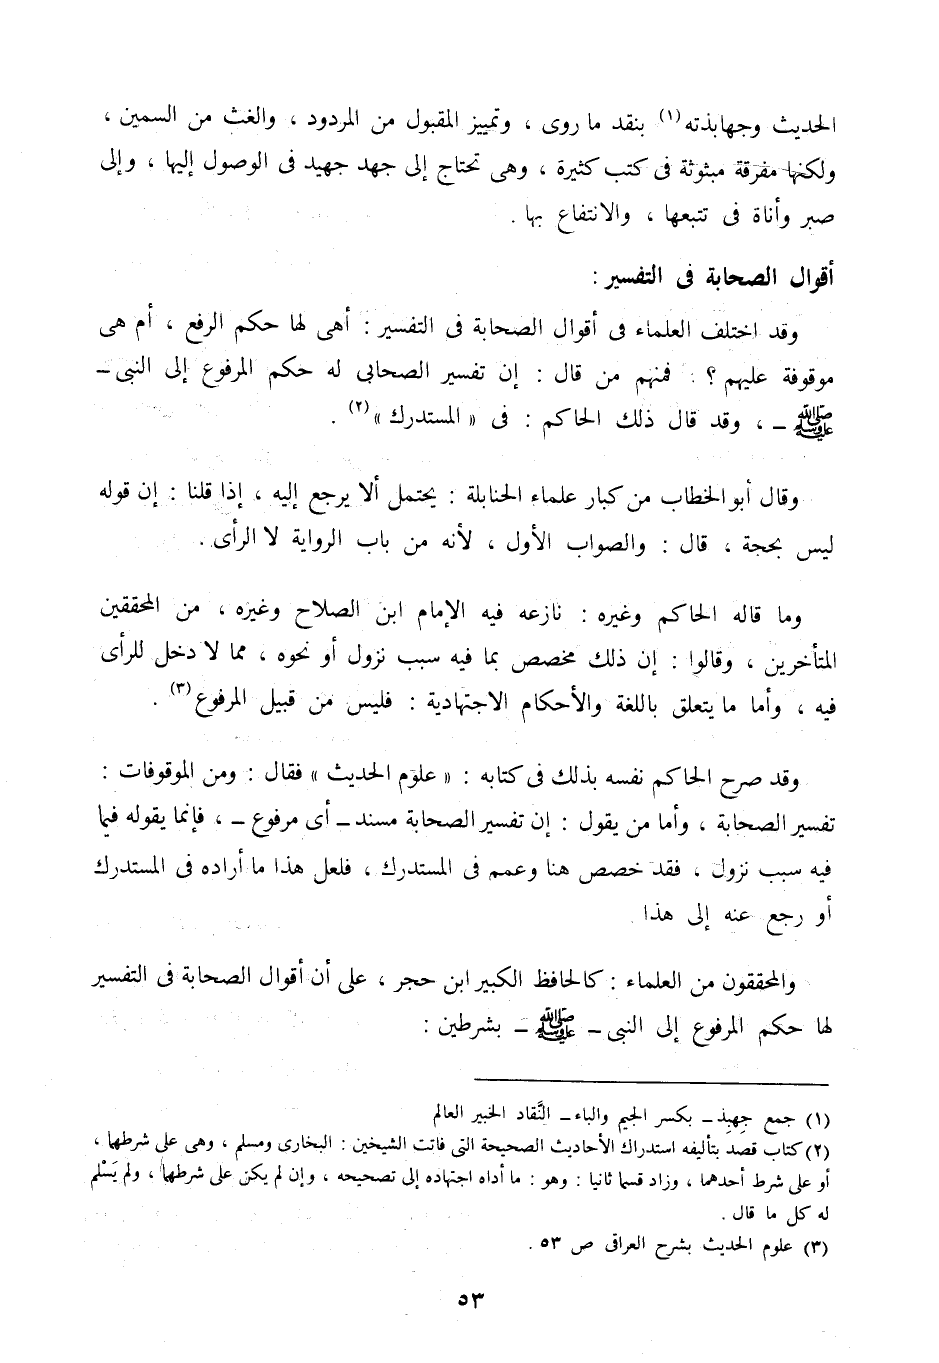 الحديث وجهابذته(١) بنقد ما روى ، وتمييز المقبول من المردود ، والغث من السمين ،
ولكنها مفرقة مبثوثة فى كتب كثيرة ، وهى تحتاج إلى جهد جهيد فى الوصول إليها ، وإلى
صبر وأناة فى تتبعها ، والانتفاع بها .
أقوال الصحابة فى التفسير :
وقد اختلف العلماء فى أقوال الصحابة فى التفسير : أهى لها حكم الرفع ، أم هى
موقوفة عليهم ؟ : فمنهم من قال : إن تفسير الصحابى له حكم المرفوع إلى النبى ـ
ﷺ ـ ، وقد قال ذلك الحاكم : فى « المستدرك »(٢) .
وقال أبو الخطاب من كبار علماء الحنابلة : يحتمل ألا يرجع إليه ، إذا قلنا : إن قوله
ليس بحجة ، قال : والصواب الأول ، لأنه من باب الرواية لا الرأى .
وما قاله الحاكم وغيره : نازعه فيه الإمام ابن الصلاح وغيره ، من المحققين
المتأخرين ، وقالوا : إن ذلك مخصص بما فيه سبب نزول أو نحوه ، مما لا دخل للرأى
فيه ، وأما ما يتعلق باللغة والأحكام الاجتهادية : فليس من قبيل المرفوع(٣) .
وقد صرح الحاكم نفسه بذلك فى كتابه : « علوم الحديث » فقال : ومن الموقوفات :
تفسير الصحابة ، وأما من يقول : إن تفسير الصحابة مسند ـ أى مرفوع ـ ، فإنما يقوله فيما
فيه سبب نزول ، فقد خصص هنا وعمم فى المستدرك ، فلعل هذا ما أراده فى المستدرك
أو رجع عنه إلى هذا .
والمحققون من العلماء : كالحافظ الكبير ابن حجر ، على أن أقوال الصحابة فى التفسير
لها حكم المرفوع إلى النبى ـ ﷺ ـ بشرطين :
(١) جمع جِهبِذ ـ بكسر الجيم والباء ـ النَّقاد الخبير العالم
(٢) كتاب قصد بتأليفه استدراك الأحاديث الصحيحة التى فاتت الشيخين : البخارى ومسلم ، وهى على شرطها ،
أو على شرط أحدهما ، وزاد قسما ثانيا : وهو : ما أداه اجتهاده إلى تصحيحه ، وإن لم يكن على شرطها ، ولم يَسْلم
له كل ما قال .
(٣) علوم الحديث بشرح العراقى ص ٥٣ .
٥٣